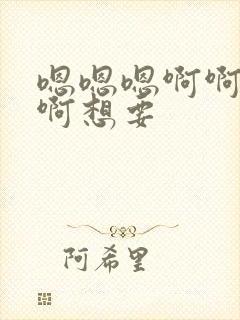 嗯嗯嗯啊啊
啊想要
阿希里